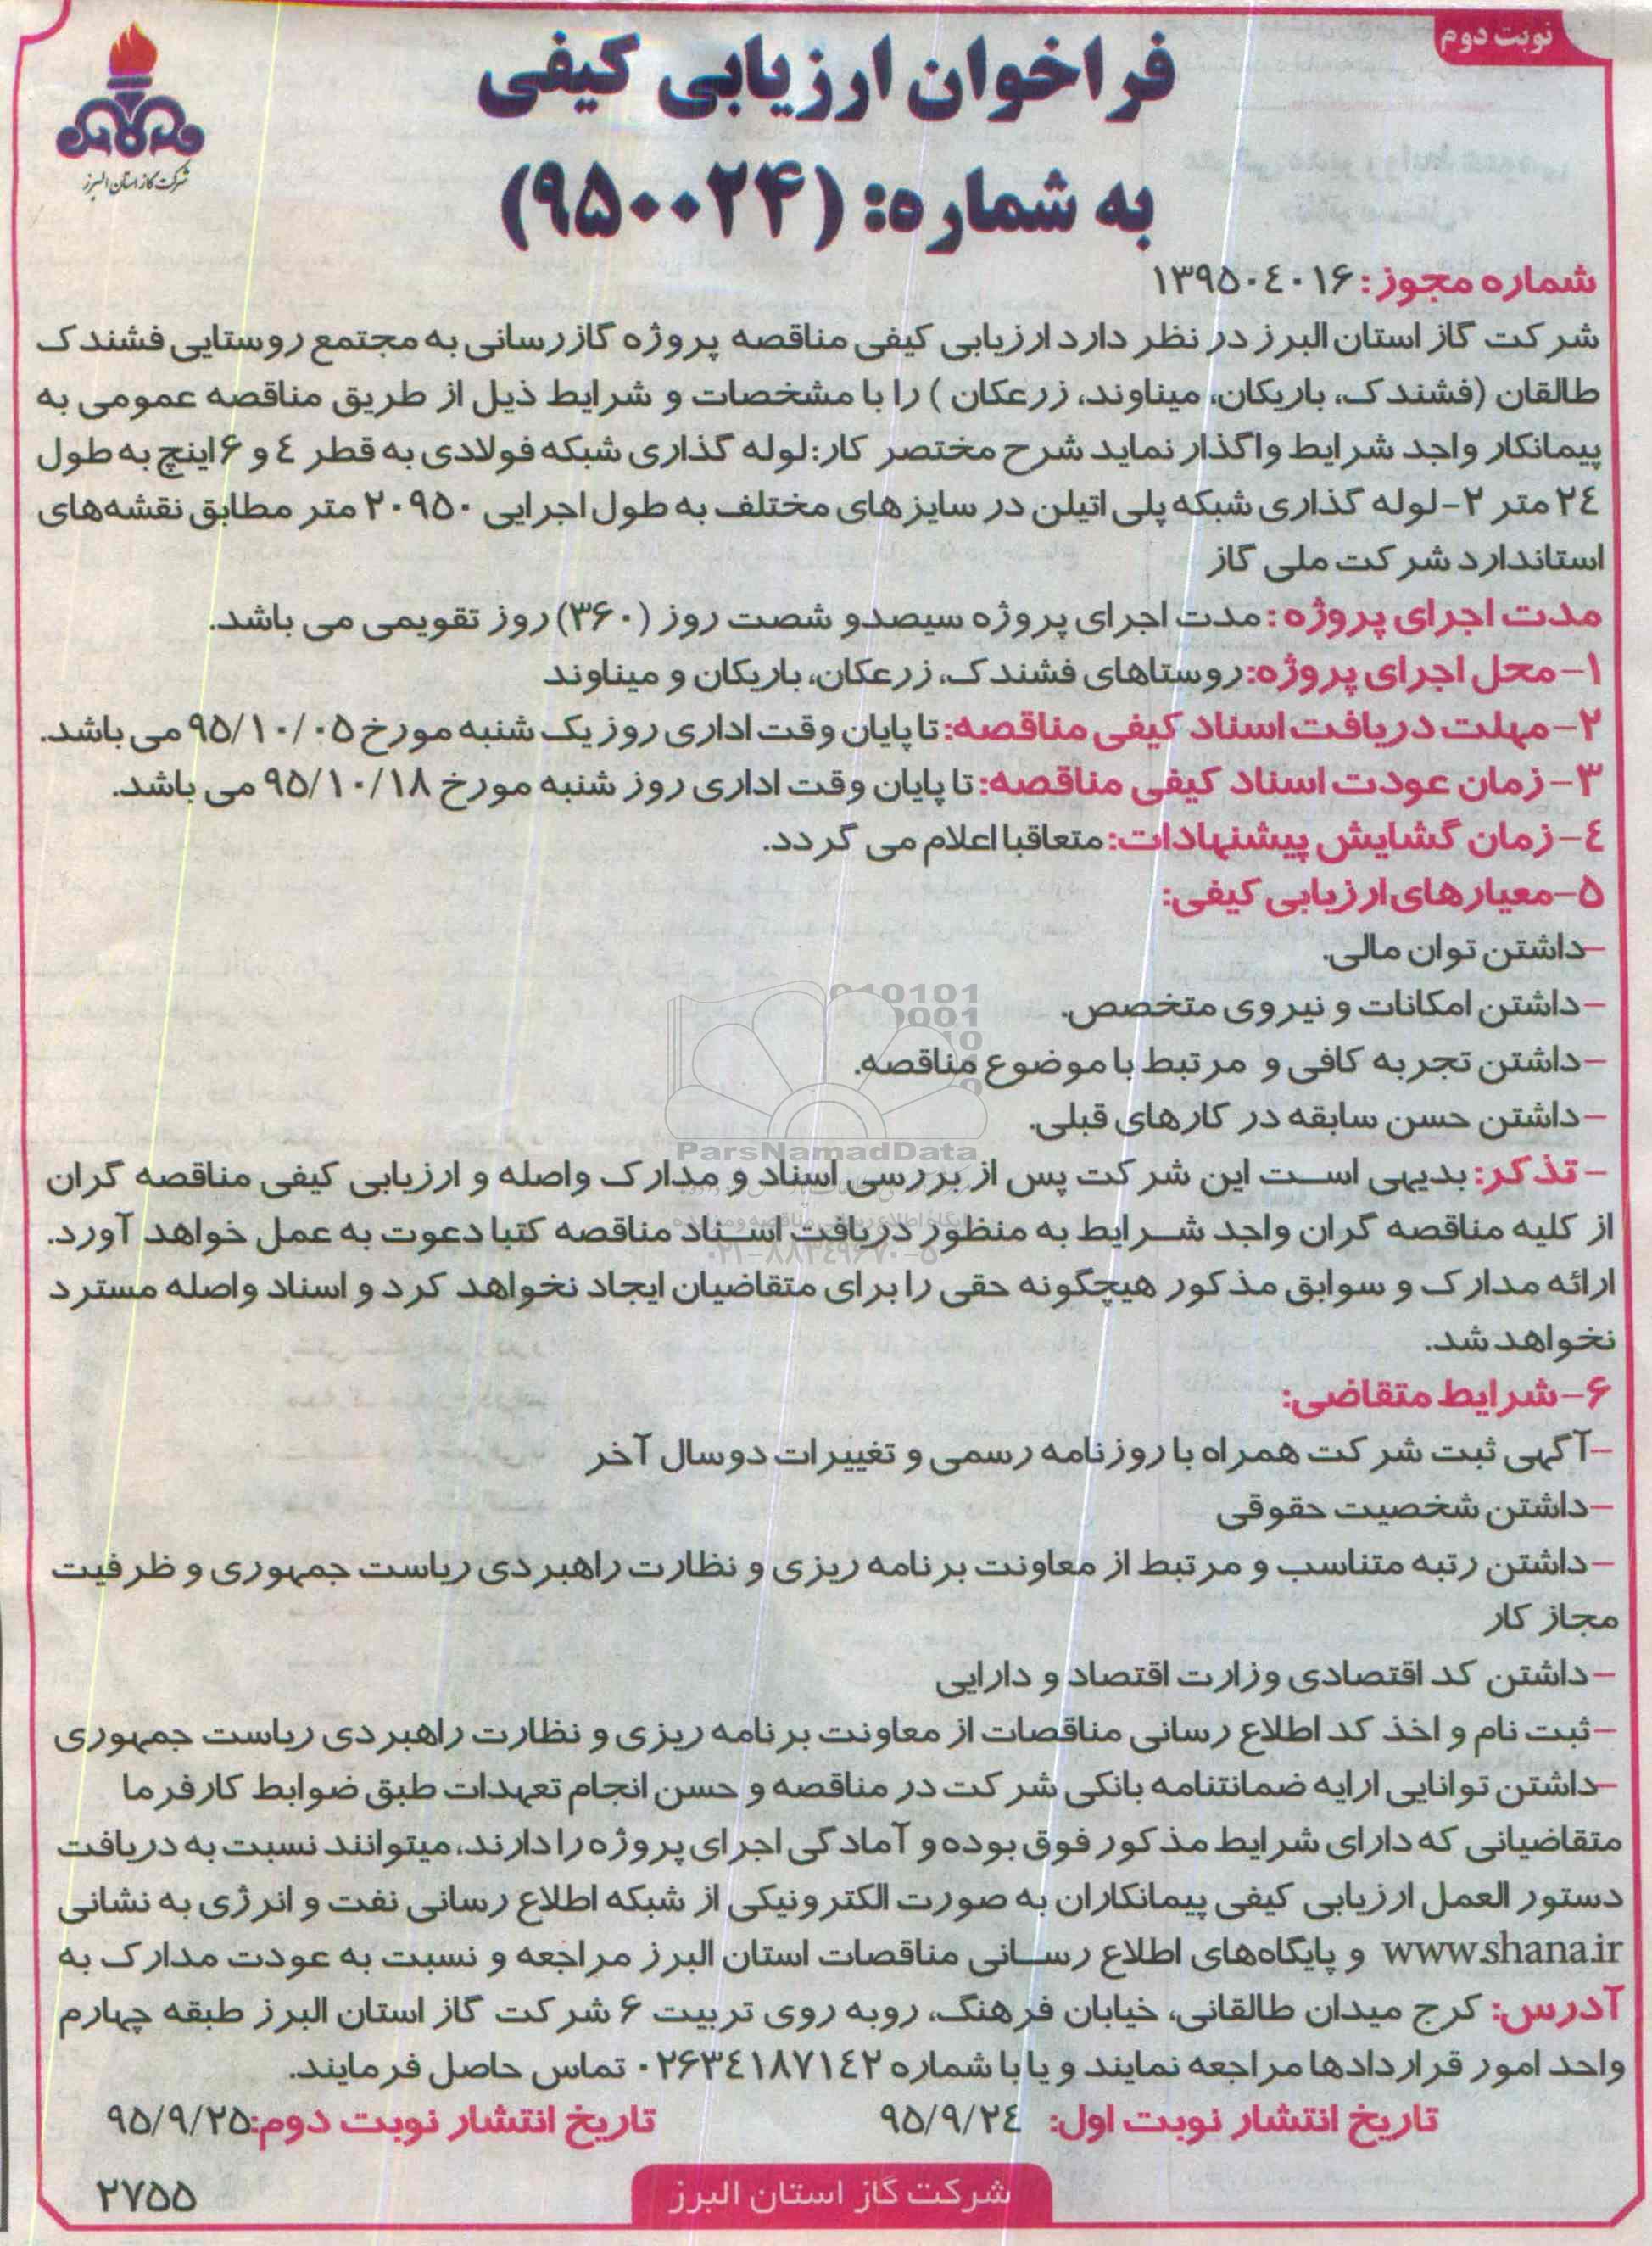 نوبت دوم
فراخوان ارزیابی کیفی
به شماره: (۹۵۰۰۲۴)
شرکت گاز استان البرز
شماره مجوز: ۱۳۹۵۰۴۰۱۶
شرکت گاز استان البرز در نظر دارد ارزیابی کیفی مناقصه پروژه گازرسانی به مجتمع روستایی فشندک
طالقان (فشندک، باریکان، میناوند، زرعکان ) را با مشخصات و شرایط ذیل از طریق مناقصه عمومی به
پیمانکار واجد شرایط واگذار نماید شرح مختصر کار: لوله گذاری شبکه فولادی به قطر ٤ و ۶ اینچ به طول
۲٤ متر ۲- لوله گذاری شبکه پلی اتیلن در سایزهای مختلف به طول اجرایی ۲۰۹۵۰ متر مطابق نقشه‌های
استاندارد شرکت ملی گاز
مدت اجرای پروژه: مدت اجرای پروژه سیصدو شصت روز (۳۶۰) روز تقویمی می باشد.
۱- محل اجرای پروژه: روستاهای فشندک، زرعکان، باریکان و میناوند
۲- مهلت دریافت اسناد کیفی مناقصه: تا پایان وقت اداری روز یک شنبه مورخ ۹۵/۱۰/۰۵ می باشد.
۳- زمان عودت اسناد کیفی مناقصه: تا پایان وقت اداری روز شنبه مورخ ۹۵/۱۰/۱۸ می باشد.
٤- زمان گشایش پیشنهادات: متعاقبا اعلام می گردد.
۵- معیارهای ارزیابی کیفی:
-داشتن توان مالی.
-داشتن امکانات و نیروی متخصص.
-داشتن تجربه کافی و مرتبط با موضوع مناقصه.
-داشتن حسن سابقه در کارهای قبلی.
ParsNamadData
- تذکر: بدیهی است این شرکت پس از بررسی اسناد و مدارک واصله و ارزیابی کیفی مناقصه گران
از کلیه مناقصه گران واجد شرایط به منظور دریافت اسناد مناقصه کتبا دعوت به عمل خواهد آورد.
۰۲۱-۸۸۳٤۹۶۷۰-۵
ارائه مدارک و سوابق مذکور هیچگونه حقی را برای متقاضیان ایجاد نخواهد کرد و اسناد واصله مسترد
نخواهد شد.
۶- شرایط متقاضی:
-آگهی ثبت شرکت همراه با روزنامه رسمی و تغییرات دو سال آخر
-داشتن شخصیت حقوقی
-داشتن رتبه متناسب و مرتبط از معاونت برنامه ریزی و نظارت راهبردی ریاست جمهوری و ظرفیت
مجاز کار
-داشتن کد اقتصادی وزارت اقتصاد و دارایی
-ثبت نام و اخذ کد اطلاع رسانی مناقصات از معاونت برنامه ریزی و نظارت راهبردی ریاست جمهوری
-داشتن توانایی ارایه ضمانتنامه بانکی شرکت در مناقصه و حسن انجام تعهدات طبق ضوابط کارفرما
متقاضیانی که دارای شرایط مذکور فوق بوده و آمادگی اجرای پروژه را دارند، میتوانند نسبت به دریافت
دستور العمل ارزیابی کیفی پیمانکاران به صورت الکترونیکی از شبکه اطلاع رسانی نفت و انرژی به نشانی
www.shana.ir و پایگاه‌های اطلاع رسانی مناقصات استان البرز مراجعه و نسبت به عودت مدارک به
آدرس: کرج میدان طالقانی، خیابان فرهنگ، روبه روی تربیت ۶ شرکت گاز استان البرز طبقه چهارم
واحد امور قراردادها مراجعه نمایند و یا با شماره ۰۲۶۳٤۱۸۷۱٤۲ تماس حاصل فرمایند.
تاریخ انتشار نوبت اول: ۹۵/۹/۲٤
تاریخ انتشار نوبت دوم: ۹۵/۹/۲۵
شرکت گاز استان البرز
۲۷۵۵